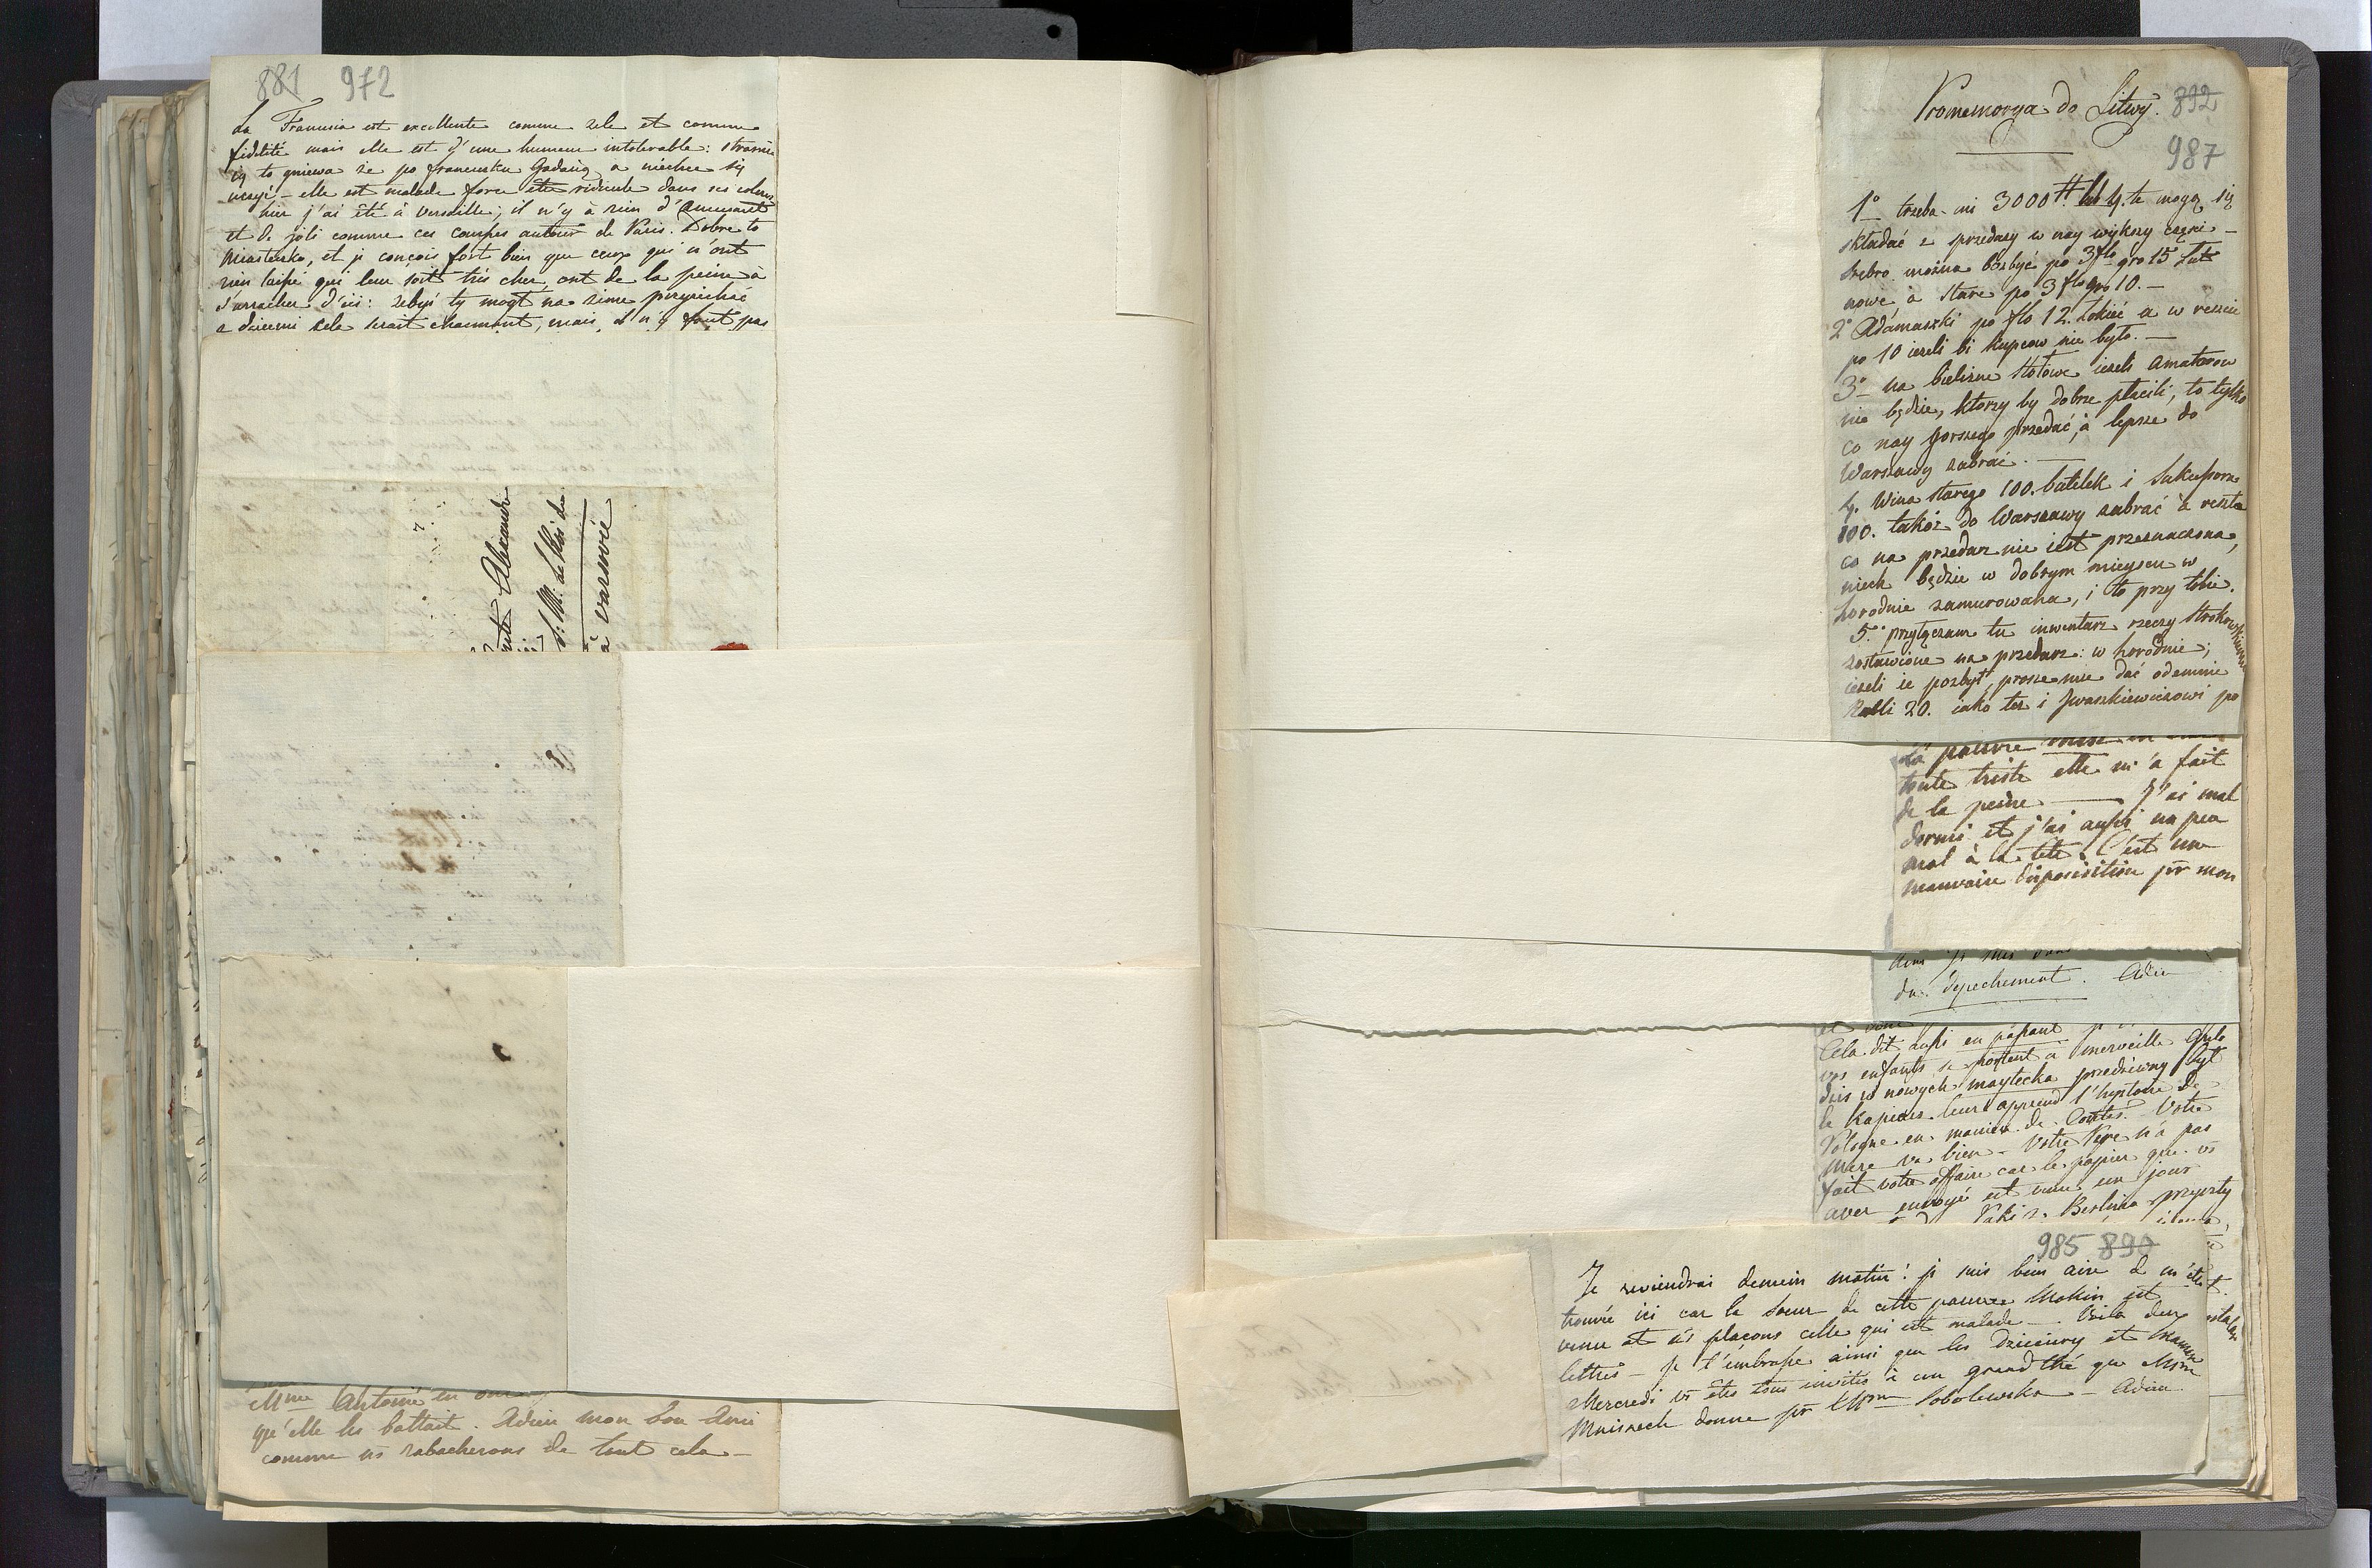 881 972
La Franusia est excellente comme zele et comme
fidelité mais elle est d'une humeur intolerable: strasnie
ią to gniewa ze po francusku gadaią a niechce się
uczyć – elle est malade force être ridicule dans ses coleres
hier j'ai été à Versaille; il n'y à rien d'amusant
et de joli comme ces courses autour de Paris. Dobre to
Miasteczko, et je conçois fort bien que ceux qui n'ont
rien laissé qui leur soit très cher, ont de la peine à
s'arracher d'ici: zebyś ty mogł na zime przyiechać
z dziecmi cela serait charmant, mais il n'y faut pas
Alexandre
S: M: le Roi de
à varsovie
Mme Antoine en
qu'elle les battait. Adieu mon bon Ami
comme ns rabacherons de tout cela –
Promemorya do Litwy. 892
987
1o trzeba mi 3000 te mogą się
składać z sprzedazy w nay większy części –
Srebro można pozbyć po 3 flo gro 15 Łut
nowe à stare po 3 flo gro 10. –
2o Adamaszki po flo 12. Łokieć a w reszcie
po 10 iezeli bi kupcow nie było. –
3o na bielizne stołowe iezeli amatorow
nie będzie, ktorzy by dobrze płacili, to tylko
co nay gorszego przedać, à lepsze do
Warszawy zabrać. –
4. Wina starego 100. butelek i
100. takóz do Warszawy zabrać à reszta
co na przedarz nie iest przeznaczona,
niech będzie w dobrym mieyscu w
horodnie zamurowana, i to przy tobie.
5o przyłączam tu inwentarz rzeczy
zostawione na przedarz: w horodnie;
iezeli ie pozbył, prosze mu dać odemnie
Rubli 20. iako tez i Iwaszkiewiczowi po
la pauvre
toute triste elle m'a fait
de la peine — J'ai mal
dormi et j'ai aussi un peu
mal à la tete. C'est une
mauvaise disposition pr mon
du depechement. Adieu
Cela dit aussi en passant
vos enfants se portent à merveille
dziś w nowych maytecka przedziwny był
le kapias leur apprend l'histoire de
Pologne en maniere de Contes. Votre
Mere va bien – Votre Pere n'a pas
fait votre affaire car le papier que vs
aver envoyé est venu un jour
z Berlina przyszły
985 890
Je reviendrai demain matin! je suis bien aise de m'être
trouvé ici car la soeur de cette pauvre Mokin est
venu et ns placons celle qui est malade –. Voila deux
lettres – je t'embrasse ainsi que les Dzieciuvy et
Mercredi vs êtes tous invités à un grand thé que Msme
Mniszech donne pr Msme Sobolewska – Adieu